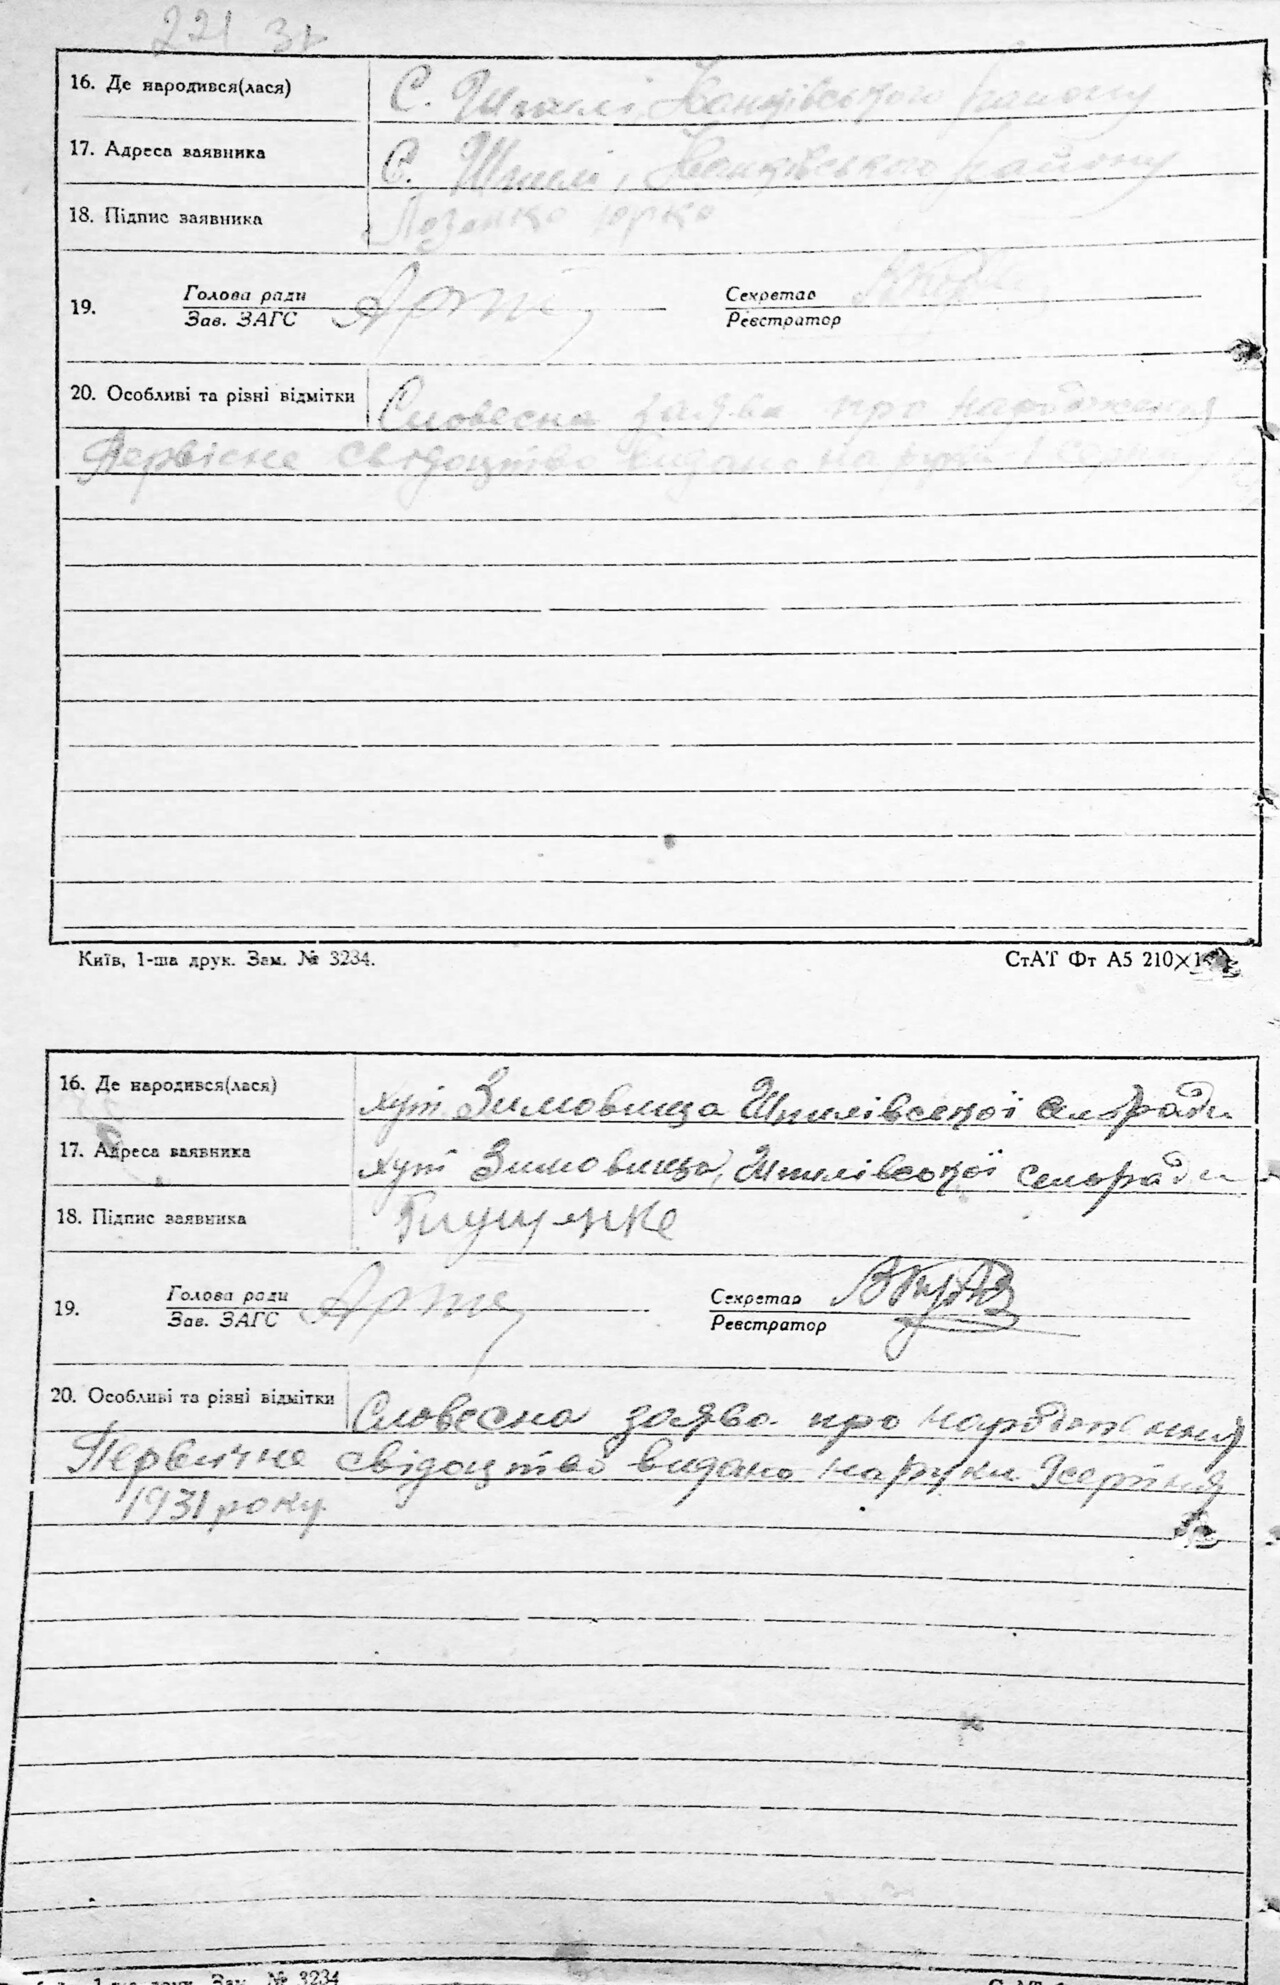 221 зв
16. Де народився(лася) С. Шпилі, Іванківського району
17. Адреса заявника С. Шпилі, Іванківського району
18. Підпис заявника Лозенко Юрко
19. Голова ради Секретар
Зав. ЗАГС Реєстратор
20. Особливі та різні відмітки Словесна заява про народження
Первісне свідоцтво видано на руки 1 серпня
Київ, 1-ша друк. Зам. № 3234. СтАТ Фт А5 210×1
16. Де народився(лася) хут Зимовища Шпилівської сельради
17. Адреса заявника хут Зимовища, Шпилівської сельради
18. Підпис заявника
19. Голова ради Секретар
Зав. ЗАГС Реєстратор
20. Особливі та різні відмітки Словесна заява про народження
Первичне свідоцтво видано на руки 9 серпня
1931 року
1-ша друк. Зам. № 3234